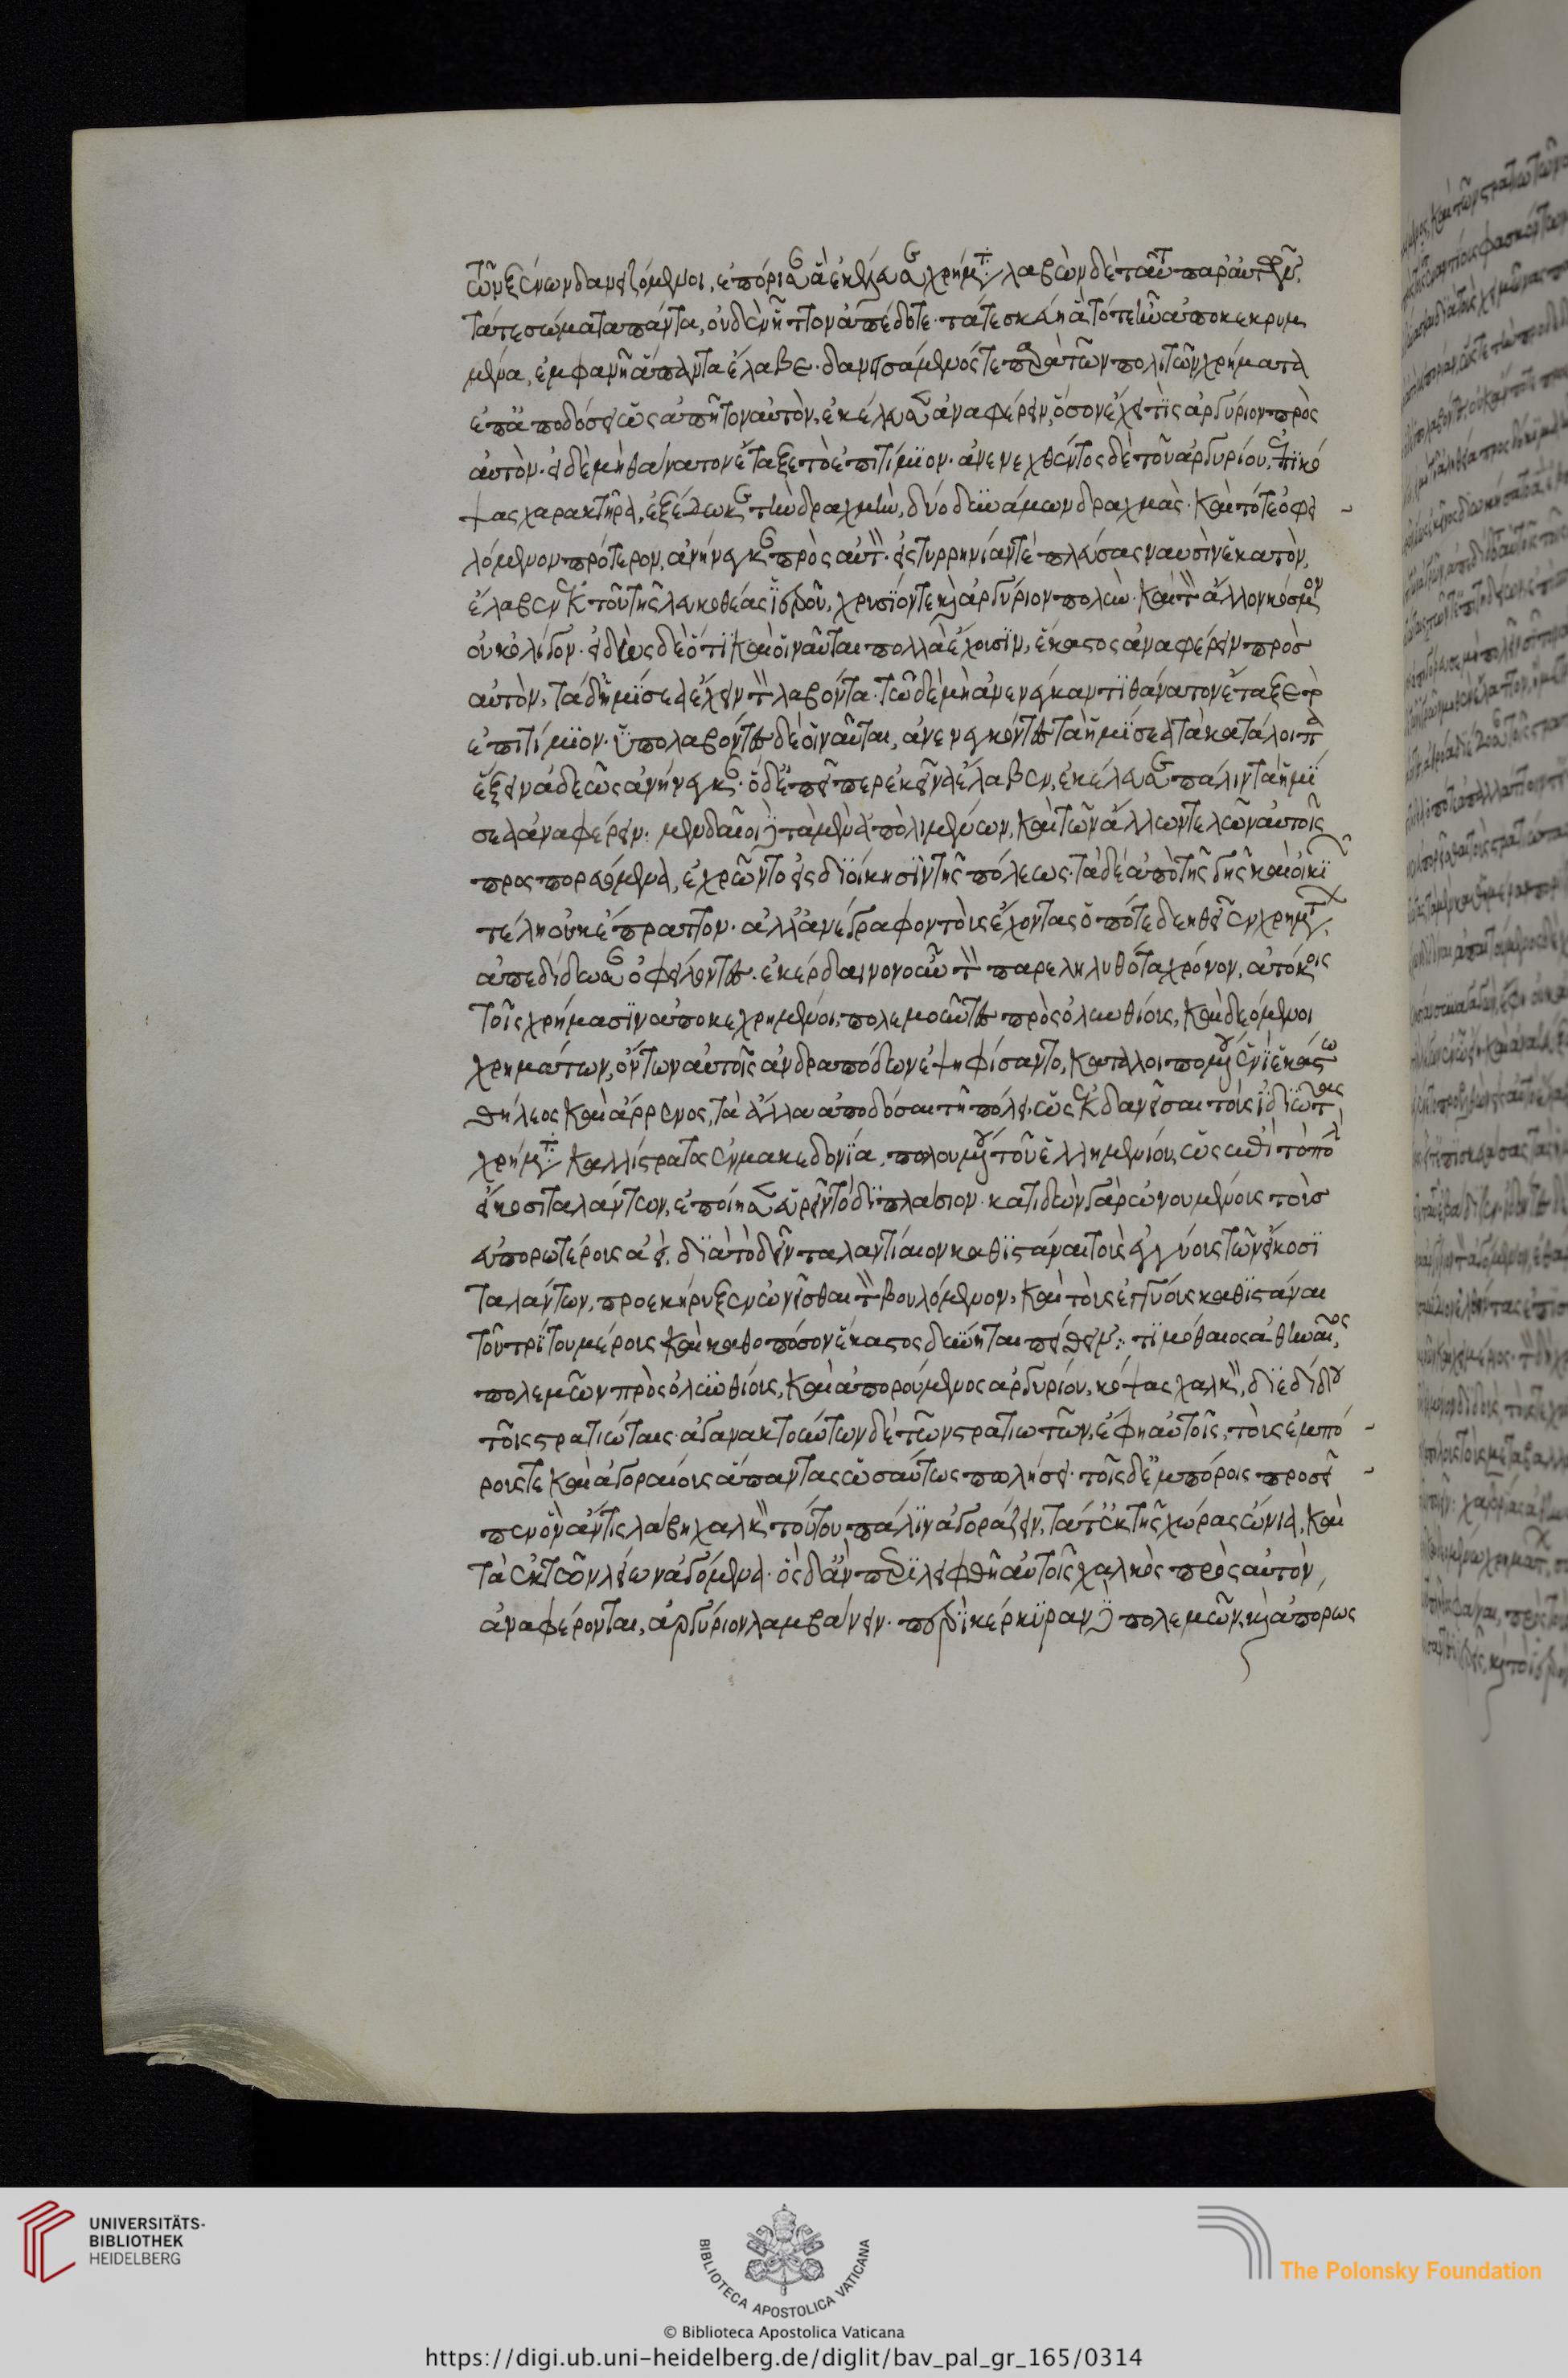 τῶν ξένων δανειζόμενοι, ἐπόρισαν ἃ ἐκέλευσε χρήματα· λαβὼν δὲ ταῦτα παρ' αὐτῶν,
τά τε σώματα πάντα, οὐδὲν ἧττον ἀπέδοτο· τά τε σκεύη ἃ τότε ἦν ἀποκεκρυμ
μένα, ἐμφανῆ ἅπαντα ἔλαβε· δανεισάμενός τε παρὰ τῶν πολιτῶν χρήματα
ἐπ' ἀποδόσει, ὡς ἀπήτουν αὐτὸν, ἐκέλευσεν ἀναφέρειν, ὅσον ἔχει τὶς ἀργύριον πρὸς
αὐτὸν· εἰ δὲ μὴ θάνατον ἔταξε τὸ ἐπιτίμιον· ἀνενεχθέντος δὲ τοῦ ἀργυρίου, ἐπικό
ψας χαρακτῆρα, ἐξέδωκε τὴν δραχμὴν, δύο δυναμένων δραχμὰς· καὶ τό τε ὀφει
λόμενον πρότερον, ἀνήνεγκε πρὸς αὐτὸν· εἰς τυρρηνίαν τε πλεύσας ναυσὶν ἑκατὸν,
ἔλαβεν ἐκ τοῦ τῆς λευκοθέας ἱεροῦ, χρυσίον τε καὶ ἀργύριον πολὺ· καὶ τὸν ἄλλον κόσμον
οὐκ ὀλίγον· εἰδὼς δὲ ὅτι καὶ οἱ ναῦται πολλὰ ἔχουσιν, ἕκαστος ἀναφέρειν πρὸς
αὐτὸν, τὰ δ' ἡμίσεα ἔχειν τὸν λαβόντα· τῶ δὲ μὴ ἀνενέγκαντι θάνατον ἔταξε τὸ
ἐπιτίμιον· ὑπολαβόντες δὲ οἱ ναῦται, ἀνενεγκόντες τὰ ἡμίσεα τὰ κατάλοιπα
ἕξειν ἀδεῶς ἀνήνεγκαν· ὁ δ' ἐπείπερ ἐκεῖνα ἔλαβεν, ἐκέλευσε πάλιν τὰ ἡμί
σεα ἀναφέρειν· μενδαῖοι δὲ τὰ μὲν ἀπὸ λιμένων, καὶ τῶν ἄλλων τελῶν αὐτοῖς
προσπορευόμενα, ἐχρῶντο εἰς διοίκησιν τῆς πόλεως· τὰ δὲ ἀπὸ τῆς γῆς καὶ οἰκιῶν
τέλη οὐκ ἔπραττον· ἀλλ' ἀνέγραφον τοὺς ἔχοντας ὁπότε δεηθεῖεν χρημάτων,
ἀπεδίδωσαν ὀφείλοντες· ἐκέρδαινον οὖν τὸν παρεληλυθότα χρόνον, ἀτόκοις
τοῖς χρήμασιν ἀποκεχρημένοι, πολεμοῦντες πρὸς ὀλυνθίους, καὶ δεόμενοι
χρημάτων, ὄντων αὐτοῖς ἀνδραπόδων ἐψηφίσαντο, καταλοιπομένου ἑνὶ ἑκάστω
θήλεος καὶ ἄρρενος, τὰ ἄλλα ἀποδόσαι τῆ πόλει, ὡς ἐκδανεῖσαι τοὺς ἰδιώτας
χρήματα· καλλίστρατος ἐν μακεδονία, πωλουμένου τοῦ ἐλλημενίου, ὡς ἐπὶ τὸ πολὺ
εἴκοσι ταλάντων, ἐποίησεν εὑρεῖν τὸ διπλάσιον· κατιδὼν γὰρ ὠνουμένους τοὺς
εὐπορωτέρους ἀεὶ, διὰ τὸ δεῖν ταλαντιαῖον καθιστάναι τοὺς ἐγγύους τῶν εἴκοσι
ταλάντων, προεκήρυξεν ὠνεῖσθαι τὸν βουλόμενον, καὶ τοὺς ἐγγύους καθιστάναι
τοῦ τρίτου μέρους καὶ καθ' ὁπόσον ἕκαστος δύνηται πείθειν· τιμόθεος ἀθηναῖος,
πολεμῶν πρὸς ὀλυνθίους, καὶ ἀπορούμενος ἀργυρίου, κόψας χαλκὸν, διεδίδου
τοῖς στρατιώταις· ἀγανακτούντων δὲ τῶν στρατιωτῶν, ἔφη αὐτοῖς, τοὺς ἐμπό
ρους τε καὶ ἀγοραίους ἅπαντας ὡσαύτως πωλήσειν· τοῖς δ' ἐμπόροις προσεῖ
πεν ὃν ἄν τις λάβη χαλκὸν τούτου πάλιν ἀγοράζειν, τά τ' ἐκ τῆς χώρας ὤνια, καὶ
τὰ ἐκ τῶν λειῶν ἀγόμενα· ὃς δ' ἂν περιλειφθῆ αὐτοῖς χαλκὸς πρὸς αὐτὸν,
ἀναφέρονται, ἀργύριον λαμβάνειν· περὶ κέρκυραν δὲ πολεμῶν, καὶ ἀπόρως
UNIVERSITÄTS-
BIBLIOTHEK
HEIDELBERG
BIBLIOTECA APOSTOLICA VATICANA
The Polonsky Foundation
© Biblioteca Apostolica Vaticana
https://digi.ub.uni-heidelberg.de/diglit/bav_pal_gr_165/0314